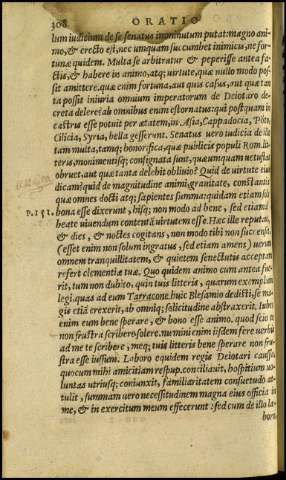 308 ORATIO
lum iudicium de se senatus imminutum putat: magno ani-
mo, & erecto est, nec umquam succumbet inimicis, ne for-
tunae quidem. Multa se arbitratur & peperisse ante a fa-
ctis, & habere in animo, atq; uirtute, quae nullo modo pos-
sit amittere. quae enim fortuna, aut quis casus, aut quae tan
ta possit iniuria omnium imperatorum de Deiotaro de-
creta delere? ab omnibus enim est ornatus: qui postquam in
castris esse potuit per aetatem, in Asia, Cappadocia, Pōto,
Cilicia, Syria, bella gesserunt. Senatus uero iudicia de illo
tam multa, tamq; honorifica, quae publicis populi Rom. lit-
teris, monimentisq; consignata sunt, quae umquam uetustas
obruet, aut quae tanta delebit obliuio? Quid de uirtute eius
dicam? quid de magnitudine animi, grauitate, constantia?
quae omnes docti atq; sapientes summa: quidam etiam sola
P. 151. bona esse dixerunt, hisq; non modo ad bene, sed etiam ad
beate uiuendum contentā uirtutem esse. Haec ille reputans,
& dies, & noctes cogitans, non modo tibi non succenset,
(esset enim non solum ingratus, sed etiam amens) uerum
omnem tranquillitatem, & quietem senectutis acceptam
refert clementiae tuae. Quo quidem animo cum antea fue-
rit, tum non dubito, quin tuis litteris, quarum exemplum
legi, quas ad eum Tarracone huic Blesamio dedisti, se ma-
gis etiā erexerit, ab omniq; solicitudine abstraxerit. Iubes
enim eum bene sperare, & bono esse animo. quod scio te
non frustra scribere solere. memini enim iisdem fere uerbis
ad me te scribere, meq; tuis litteris bene sperare non fru-
stra esse iussum. Laboro equidem regis Deiotari caussa,
quocum mihi amicitiam respub. conciliauit, hospitium uo-
luntas utriusq; coniunxit, familiaritatem consuetudo at-
tulit, summam uero necessitudinem magna eius officia in
me, & in exercitum meum effecerunt: sed cum de illo la-
boro